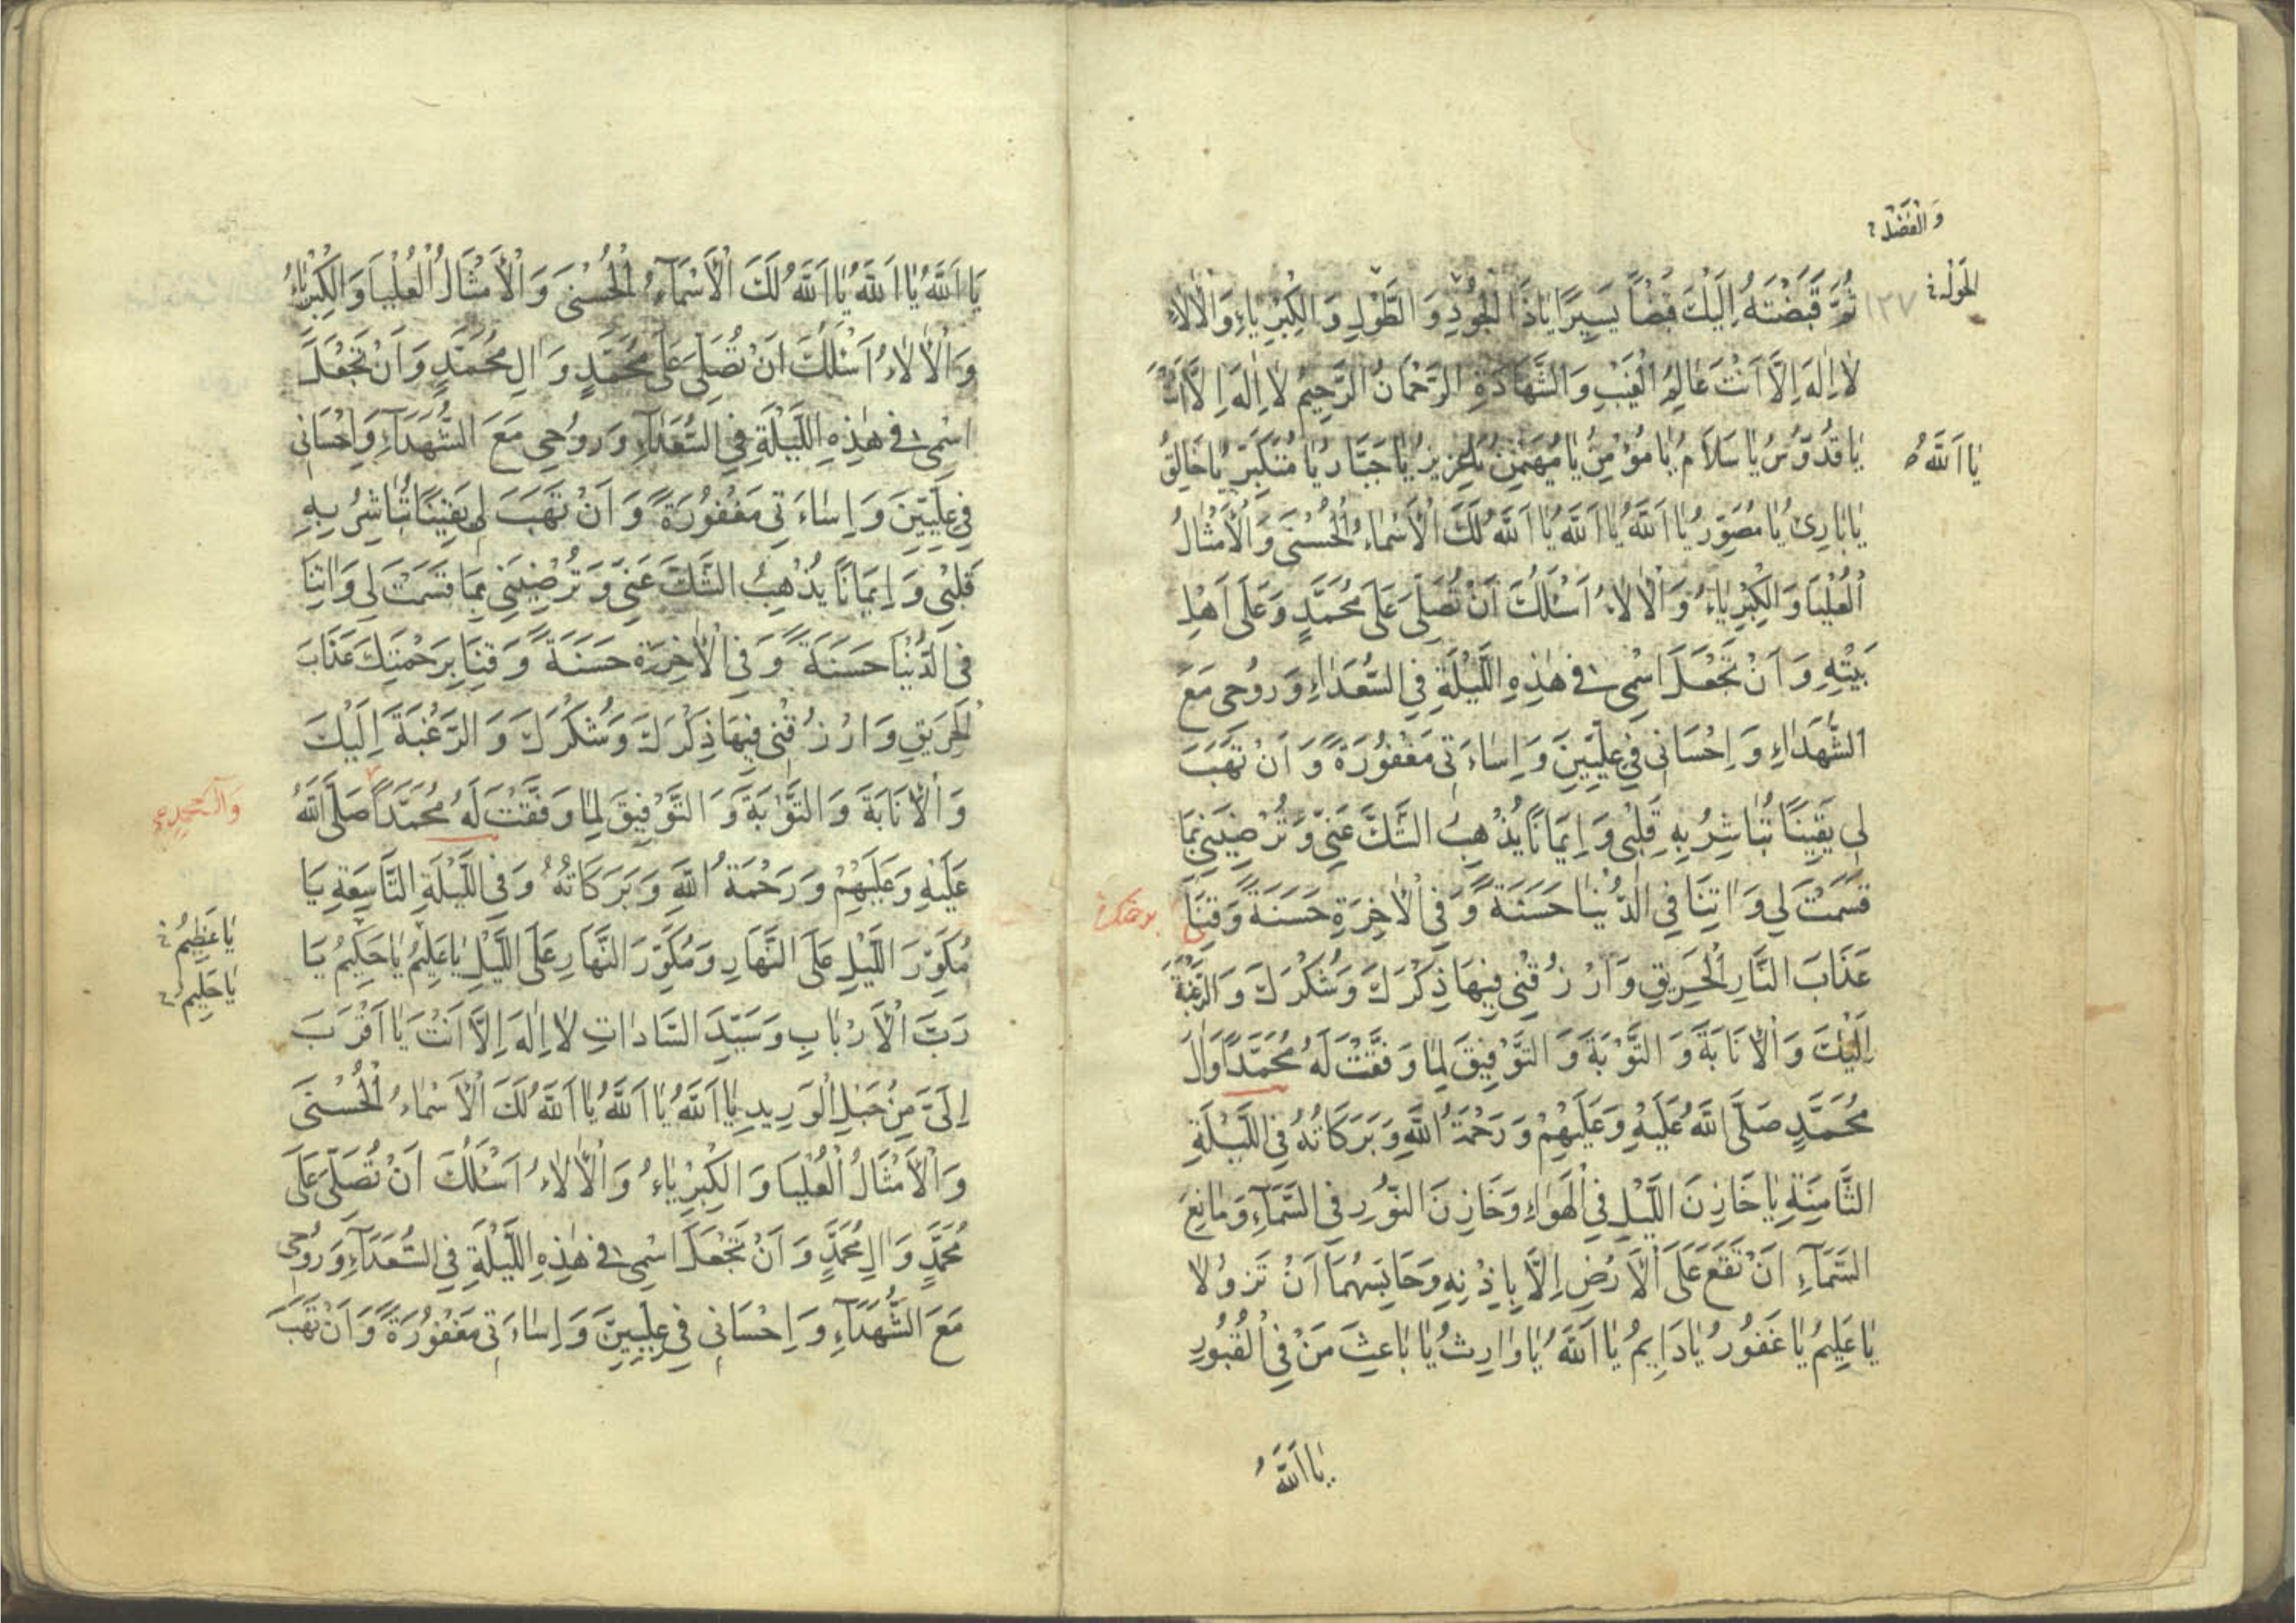 وَالْفَضْلِ
الْحَوْلِ
١٢٧
ثُمَّ قَبَضْتَهُ اِلَيْكَ قَبْضًا يَسِيرًا يَا ذَا الْجُودِ وَالطَّوْلِ وَالْكِبْرِيَاءِ وَالْاٰلَاءِ
لَا اِلٰهَ اِلَّا اَنْتَ عَالِمُ الْغَيْبِ وَالشَّهَادَةِ الرَّحْمَانُ الرَّحِيمُ لَا اِلٰهَ اِلَّا اَنْتَ
يَا اَللّٰهُ
يَا قُدُّوسُ يَا سَلَامُ يَا مُؤْمِنُ يَا مُهَيْمِنُ يَا عَزِيزُ يَا جَبَّارُ يَا مُتَكَبِّرُ يَا خَالِقُ
يَا بَارِئُ يَا مُصَوِّرُ يَا اَللّٰهُ يَا اَللّٰهُ يَا اَللّٰهُ لَكَ الْاَسْمَاءُ الْحُسْنَى وَالْاَمْثَالُ
الْعُلْيَا وَالْكِبْرِيَاءُ وَالْاٰلَاءُ اَسْئَلُكَ اَنْ تُصَلِّىَ عَلَى مُحَمَّدٍ وَعَلَى اَهْلِ
بَيْتِهِ وَاَنْ تَجْعَلَ اسْمِى فِى هٰذِهِ اللَّيْلَةِ فِى السُّعَدَاءِ وَرُوحِى مَعَ
الشُّهَدَاءِ وَاِحْسَانِى فِى عِلِّيِّينَ وَاِسَاءَتِى مَغْفُورَةً وَاَنْ تَهَبَ
لِى يَقِينًا تُبَاشِرُ بِهِ قَلْبِى وَاِيمَانًا يُذْهِبُ الشَّكَّ عَنِّى وَتُرْضِيَنِى بِمَا
قَسَمْتَ لِى وَاٰتِنَا فِى الدُّنْيَا حَسَنَةً وَفِى الْاٰخِرَةِ حَسَنَةً وَقِنَا
برحمتك
عَذَابَ النَّارِ الْحَرِيقِ وَارْزُقْنِى فِيهَا ذِكْرَكَ وَشُكْرَكَ وَالرَّغْبَةَ
اِلَيْكَ وَالْاِنَابَةَ وَالتَّوْبَةَ وَالتَّوْفِيقَ لِمَا وَفَّقْتَ لَهُ مُحَمَّدًا وَاٰلَ
مُحَمَّدٍ صَلَّى اللّٰهُ عَلَيْهِ وَعَلَيْهِمْ وَرَحْمَةُ اللّٰهِ وَبَرَكَاتُهُ فِى اللَّيْلَةِ
الثَّامِنَةِ يَا خَازِنَ اللَّيْلِ فِى الْهَوَاءِ وَخَازِنَ النُّورِ فِى السَّمَآءِ وَمَانِعَ
السَّمَآءِ اَنْ تَقَعَ عَلَى الْاَرْضِ اِلَّا بِاِذْنِهِ وَحَابِسَهُمَا اَنْ تَزُولَا
يَا عَلِيمُ يَا غَفُورُ يَا دَايِمُ يَا اَللّٰهُ يَا وَارِثُ يَا بَاعِثَ مَنْ فِى الْقُبُورِ
يَا اَللّٰهُ
يَا اَللّٰهُ يَا اَللّٰهُ يَا اَللّٰهُ لَكَ الْاَسْمَآءُ الْحُسْنَى وَالْاَمْثَالُ الْعُلْيَا وَالْكِبْرِيَاءُ
وَالْاٰلَاءُ اَسْئَلُكَ اَنْ تُصَلِّىَ عَلَى مُحَمَّدٍ وَاٰلِ مُحَمَّدٍ وَاَنْ تَجْعَلَ
اسْمِى فِى هٰذِهِ اللَّيْلَةِ فِى السُّعَدَآءِ وَرُوحِى مَعَ الشُّهَدَآءِ وَاِحْسَانِى
فِى عِلِّيِّينَ وَاِسَاءَتِى مَغْفُورَةً وَاَنْ تَهَبَ لِى يَقِينًا تُبَاشِرُ بِهِ
قَلْبِى وَاِيمَانًا يُذْهِبُ الشَّكَّ عَنِّى وَتُرْضِيَنِى بِمَا قَسَمْتَ لِى وَاٰتِنَا
فِى الدُّنْيَا حَسَنَةً وَفِى الْاٰخِرَةِ حَسَنَةً وَقِنَا بِرَحْمَتِكَ عَذَابَ
الْحَرِيقِ وَارْزُقْنِى فِيهَا ذِكْرَكَ وَشُكْرَكَ وَالرَّغْبَةَ اِلَيْكَ
وَالْاِنَابَةَ وَالتَّوْبَةَ وَالتَّوْفِيقَ لِمَا وَفَّقْتَ لَهُ مُحَمَّدًا صَلَّى اللّٰهُ
وَآلَ مُحَمَّدٍ
عَلَيْهِ وَعَلَيْهِمْ وَرَحْمَةُ اللّٰهِ وَبَرَكَاتُهُ وَفِى اللَّيْلَةِ التَّاسِعَةِ يَا
يَا عَظِيمُ
مُكَوِّرَ اللَّيْلِ عَلَى النَّهَارِ وَمُكَوِّرَ النَّهَارِ عَلَى اللَّيْلِ يَا عَلِيمُ يَا حَكِيمُ يَا
يَا حَلِيمُ
رَبَّ الْاَرْبَابِ وَسَيِّدَ السَّادَاتِ لَا اِلٰهَ اِلَّا اَنْتَ يَا اَقْرَبَ
اِلَىَّ مِنْ حَبْلِ الْوَرِيدِ يَا اَللّٰهُ يَا اَللّٰهُ يَا اَللّٰهُ لَكَ الْاَسْمَاءُ الْحُسْنَى
وَالْاَمْثَالُ الْعُلْيَا وَالْكِبْرِيَاءُ وَالْاٰلَاءُ اَسْئَلُكَ اَنْ تُصَلِّىَ عَلَى
مُحَمَّدٍ وَاٰلِ مُحَمَّدٍ وَاَنْ تَجْعَلَ اسْمِى فِى هٰذِهِ اللَّيْلَةِ فِى السُّعَدَآءِ وَرُوحِى
مَعَ الشُّهَدَآءِ وَاِحْسَانِى فِى عِلِّيِّينَ وَاِسَاءَتِى مَغْفُورَةً وَاَنْ تَهَبَ